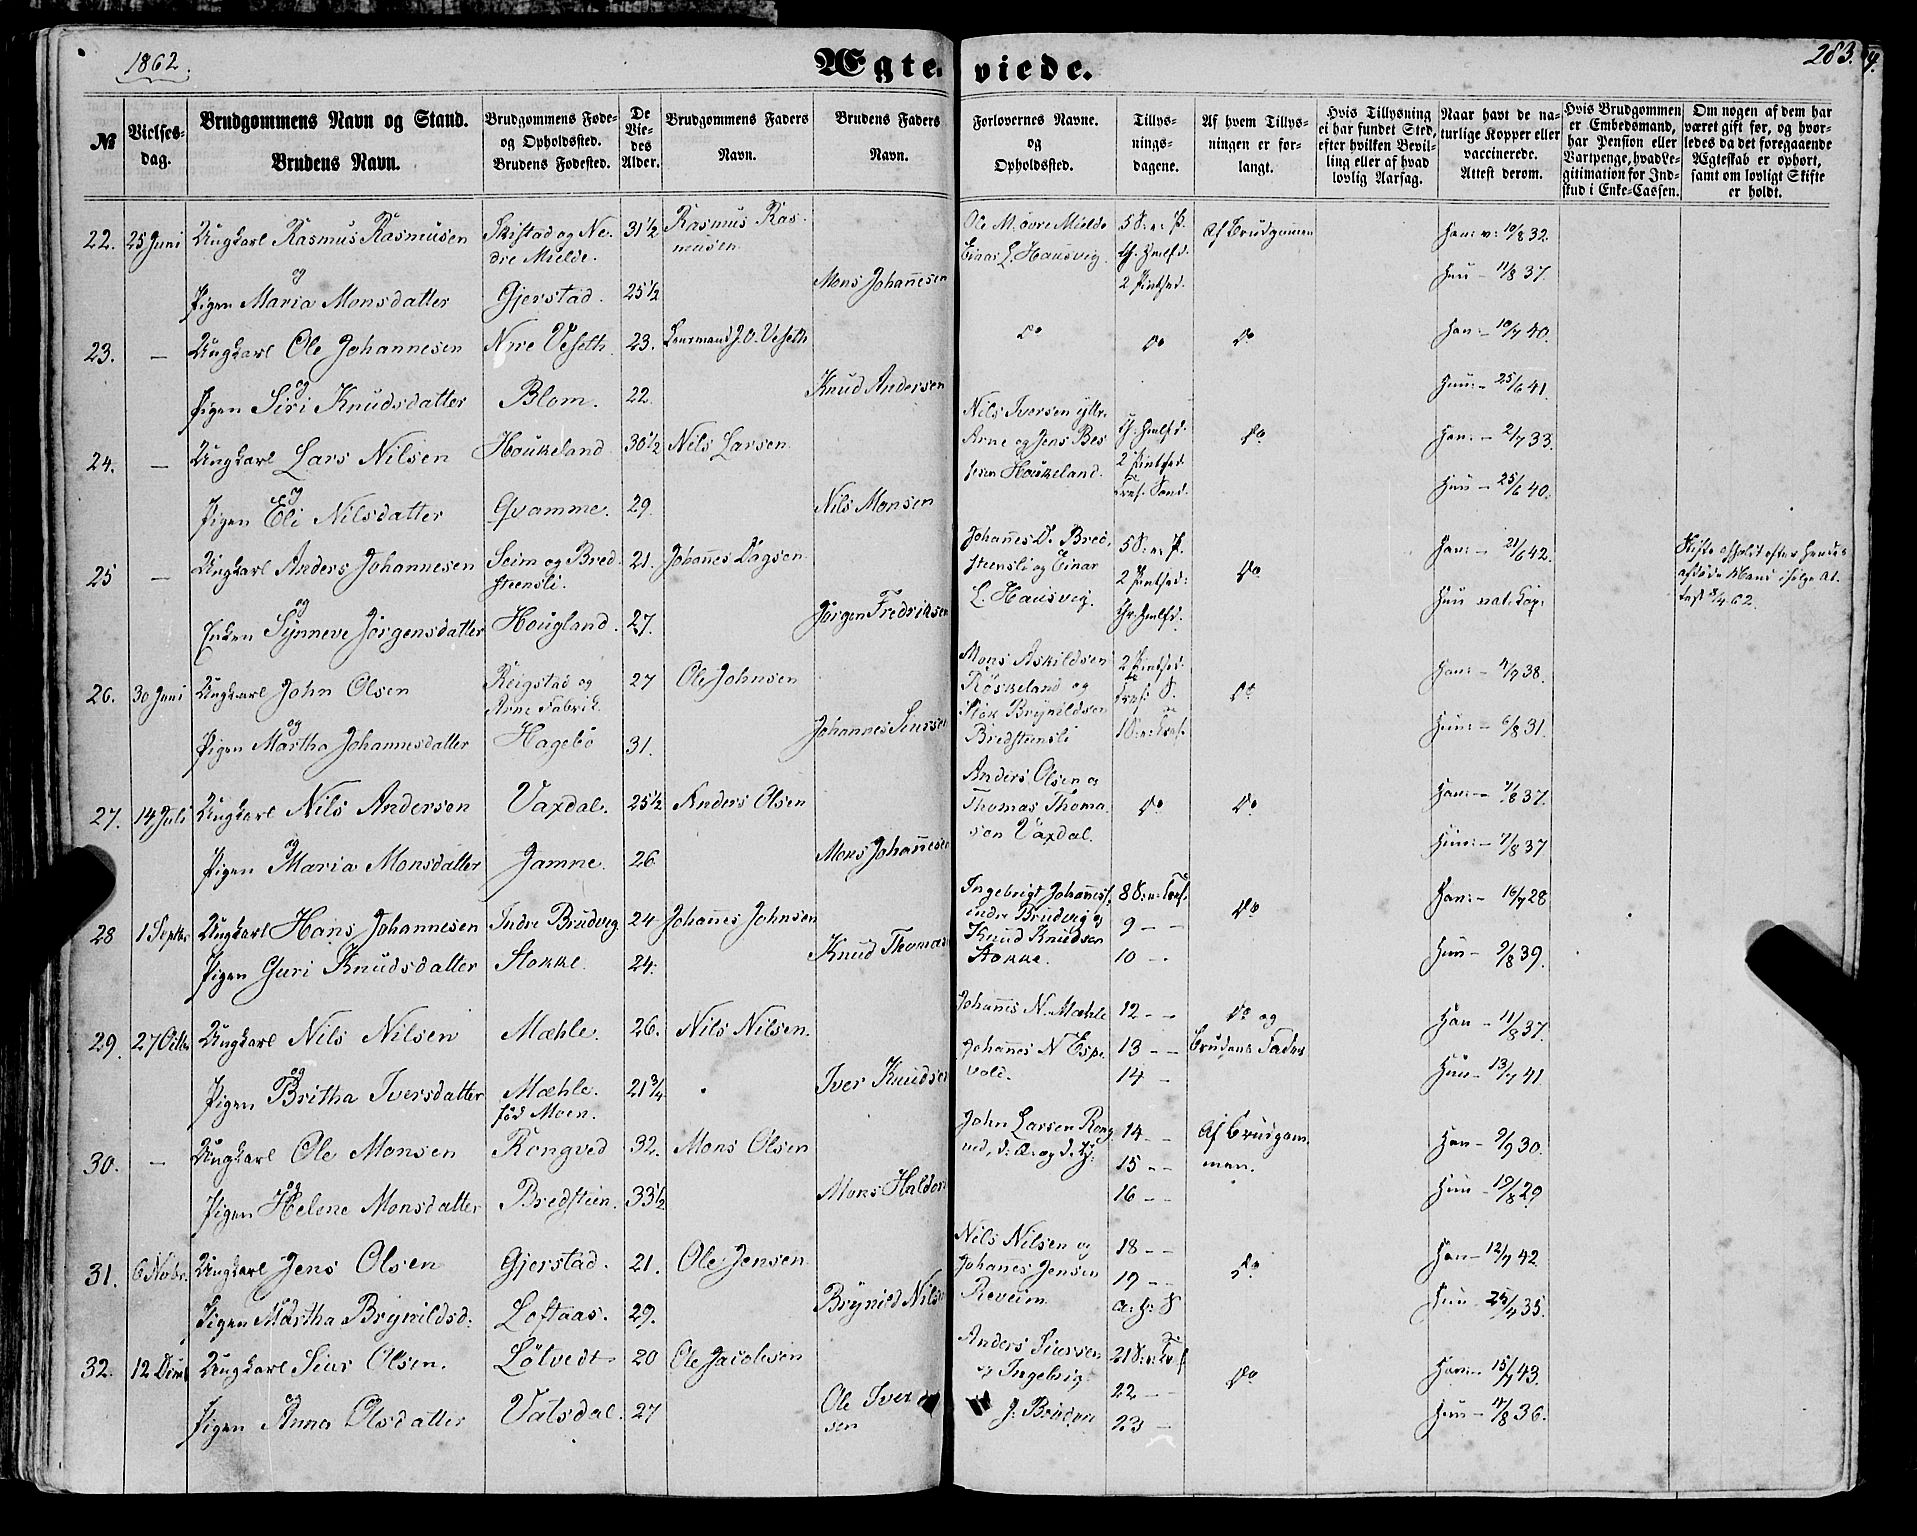 1862.
Ægteviede.
283.
№
Vielsesdag.
Brudgommens Navn og Stand.
Brudens Navn.
Brudgommens Føde- og Opholdssted.
Brudens Fødested.
De Viedes Alder.
Brudgommens Faders Navn.
Brudens Faders Navn.
Forlovernes Navne. og Opholdssted.
Tillysningsdagene.
Af hvem Tillysningen er forlangt.
Hvis Tillysning ei har fundet Sted, efter hvilken Bevilling eller af hvad lovlig Aarsag.
Naar havt de naturlige Kopper eller vaccinerede. Attest derom.
Hvis Brudgommen er Embedsmand, har Pension eller Vartpenge, hvad Legitimation for Indskud i Enke-Cassen.
Om nogen af dem har været gift før, og hvorledes da det foregaaende Ægteskab er ophørt, samt om lovligt Skifte er holdt.
22. 25 Juni Ungkarl Rasmus Rasmusen Skistad og Nedre Mielde. 31½ Rasmus Rasmusen Ole M. øvre Mielde Einar L. Hausvig. Af Brudgommen Han: v: 19/8 32.
og
Pigen Maria Monsdatter Gjerstad. 25½ Mons Johannesen Hun - 11/8 37.
23. — Ungkarl Ole Johannesen Nrre Veseth. 23. Lensmand J. O. Veseth Do Do Do Han - 19/7 40.
og
Pigen Siri Knudsdatter Blom. 22. Knud Andersen Hun - 25/6 41.
24. — Ungkarl Lars Nilsen Houkeland 30½ Nils Larsen Nils Iversen yttr. Arne og Jens Houkeland. Do Han: - 2/7 33.
og
Pigen Eli Nilsdatter Qvamme. 29. Nils Monsen Hun - 25/6 40.
25 — Ungkarl Anders Johannesen Seim og Bredsteensli. 21. Johannes Dagsen Johannes D. Bredsteensli og Einar L. Hausvig. Do Han: - 21/6 42.
og
Enken Synneve Jørgensdatter Hougland. 27. Jørgen Fredriksen Hun nat. Kop:
26. 30 Juni Ungkarl John Olsen Reigstad og Arne Fabrik 27 Ole Johnsen Mons Askildsen Røskeland og Brynildsen Bredsteensli Do Han: - 4/9 38.
og
Pigen Martha Johannesdatter Hagebø 31. Johannes Hun: - 6/8 31.
27. 14 Juli Ungkarl Nils Andersen Vaxdal. 25½ Anders Olsen Anders Olsen og Thomas Thomasen Vaxdal. Do Do Han: - 7/8 37.
og
Pigen Maria Monsdatter Jamne. 26 Mons Johannesen Hun: - 7/8 37
28 1 Septbr Ungkarl Hans Johannesen Indre Brudvig 24 Johannes Johnsen Ingebrigt Johannes. indre Brudvig og Knud Knudsen Stokke. 8 9 - - 10 - - Do Han: - 16/7 28
Pigen Guri Knudsdatter Stokke. 24. Knud Thomas Hun - 9/8 39.
29. 27 Octbr Ungkarl Nils Nilsen Mæhle. 26. Nils Nilsen. Johannes N. Mæhle Johannes N Espevold. 12 - - 13 - - 14 - Do og Brudens Fader Han - 11/8 37.
og
Pigen Britha Iversdatter Mæhle. fød Moen. 21¾ Iver Knudsen Hun - 13/7 41.
30. — Ungkarl Ole Monsen Rongved 32. Mons Olsen John Larsen Rongved, 14 - - 15 - - 16 - - Af Brudgommen. Han - 9/9 30.
og
Pigen Helene Monsdatter Bredsteen. 33½ Mons Haldor Hun - 19/8 29
31. 6 Novbr. Ungkarl Jens Olsen Gjerstad. 21. Ole Jensen Nils Nilsen og Johanes Jensen Reveim 18 - - 19 - - Do Han - 12/7 42
Pigen Martha Brynildsd: Loftaas. 29. Brynild Nilse Hun - 35.
32. 12 Ungkarl Siur Olsen. Løtvedt 20 Ole Jacobsen Anders Siursen og Ingebrig J. 21 22 - - 23 - Do Han: - 15/7 43.
og
Pigen Anna Olsdatter Vatsdal. 27 Ole Iver sen Hun - 4/8 36.